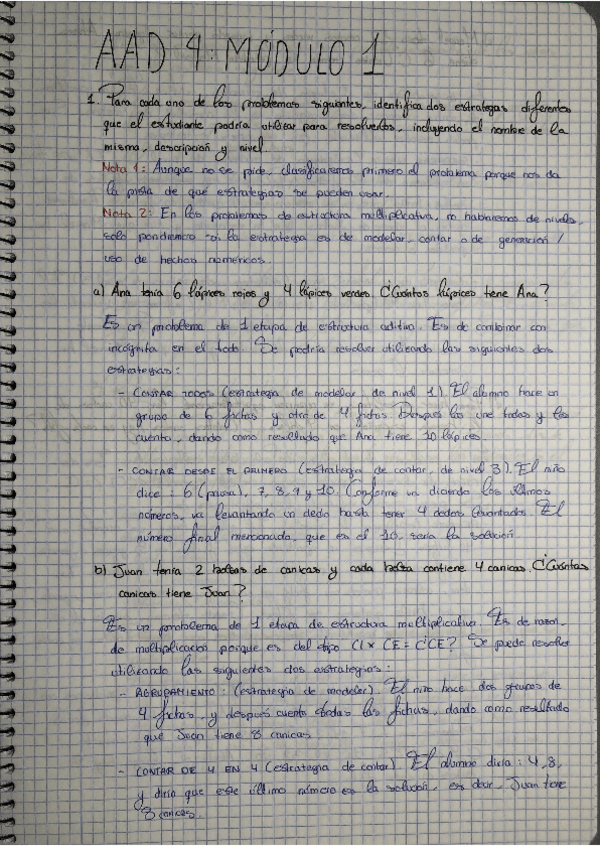 AAD 4: MÓDULO 1
1. Para cada uno de los problemas siguientes, identifica dos estrategias diferentes
que el estudiante podría utilizar para resolverlos, incluyendo el nombre de la
misma, descripción y nivel.
Nota 1: Aunque no se pide, clasificaremos primero el problema porque nos da
la pista de qué estrategias se pueden usar.
Nota 2: En los problemas de estructura multiplicativa, no hablaremos de niveles,
solo pondremos si la estrategia es de modelar, contar o de generación /
uso de hechos numéricos.
a) Ana tenía 6 lápices rojos y 4 lápices verdes ¿Cuántos lápices tiene Ana?
Es un problema de 1 etapa de estructura aditiva. Es de combinar con
incógnita en el todo. Se podría resolver utilizando las siguientes dos
estrategias:
- CONTAR TODOS (estrategia de modelar, de nivel 1). El alumno hace un
grupo de 6 fichas y otro de 4 fichas. Después las une todas y las
cuenta, dando como resultado que Ana tiene 10 lápices.
- CONTAR DESDE EL PRIMERO (estrategia de contar, de nivel 3). El niño
dice: 6 (pausa), 7, 8, 9 y 10. Conforme va diciendo los últimos
números, va levantando un dedo hasta tener 4 dedos levantados. El
número final mencionado, que es el 10, sería la solución.
b) Juan tenía 2 bolsas de canicas y cada bolsa contiene 4 canicas. ¿Cuántas
canicas tiene Juan?
Es un problema de 1 etapa de estructura multiplicativa. Es de razón,
de multiplicación porque es del tipo CI x CE = ¿CE? Se puede resolver
utilizando las siguientes dos estrategias:
- AGRUPAMIENTO: (estrategia de modelar). El niño hace dos grupos de
4 fichas, y después cuenta todas las fichas, dando como resultado
que Juan tiene 8 canicas.
- CONTAR DE 4 EN 4 (estrategia de contar). El alumno diría: 4, 8,
y diría que ese último número es la solución, es decir, Juan tiene
8 canicas.